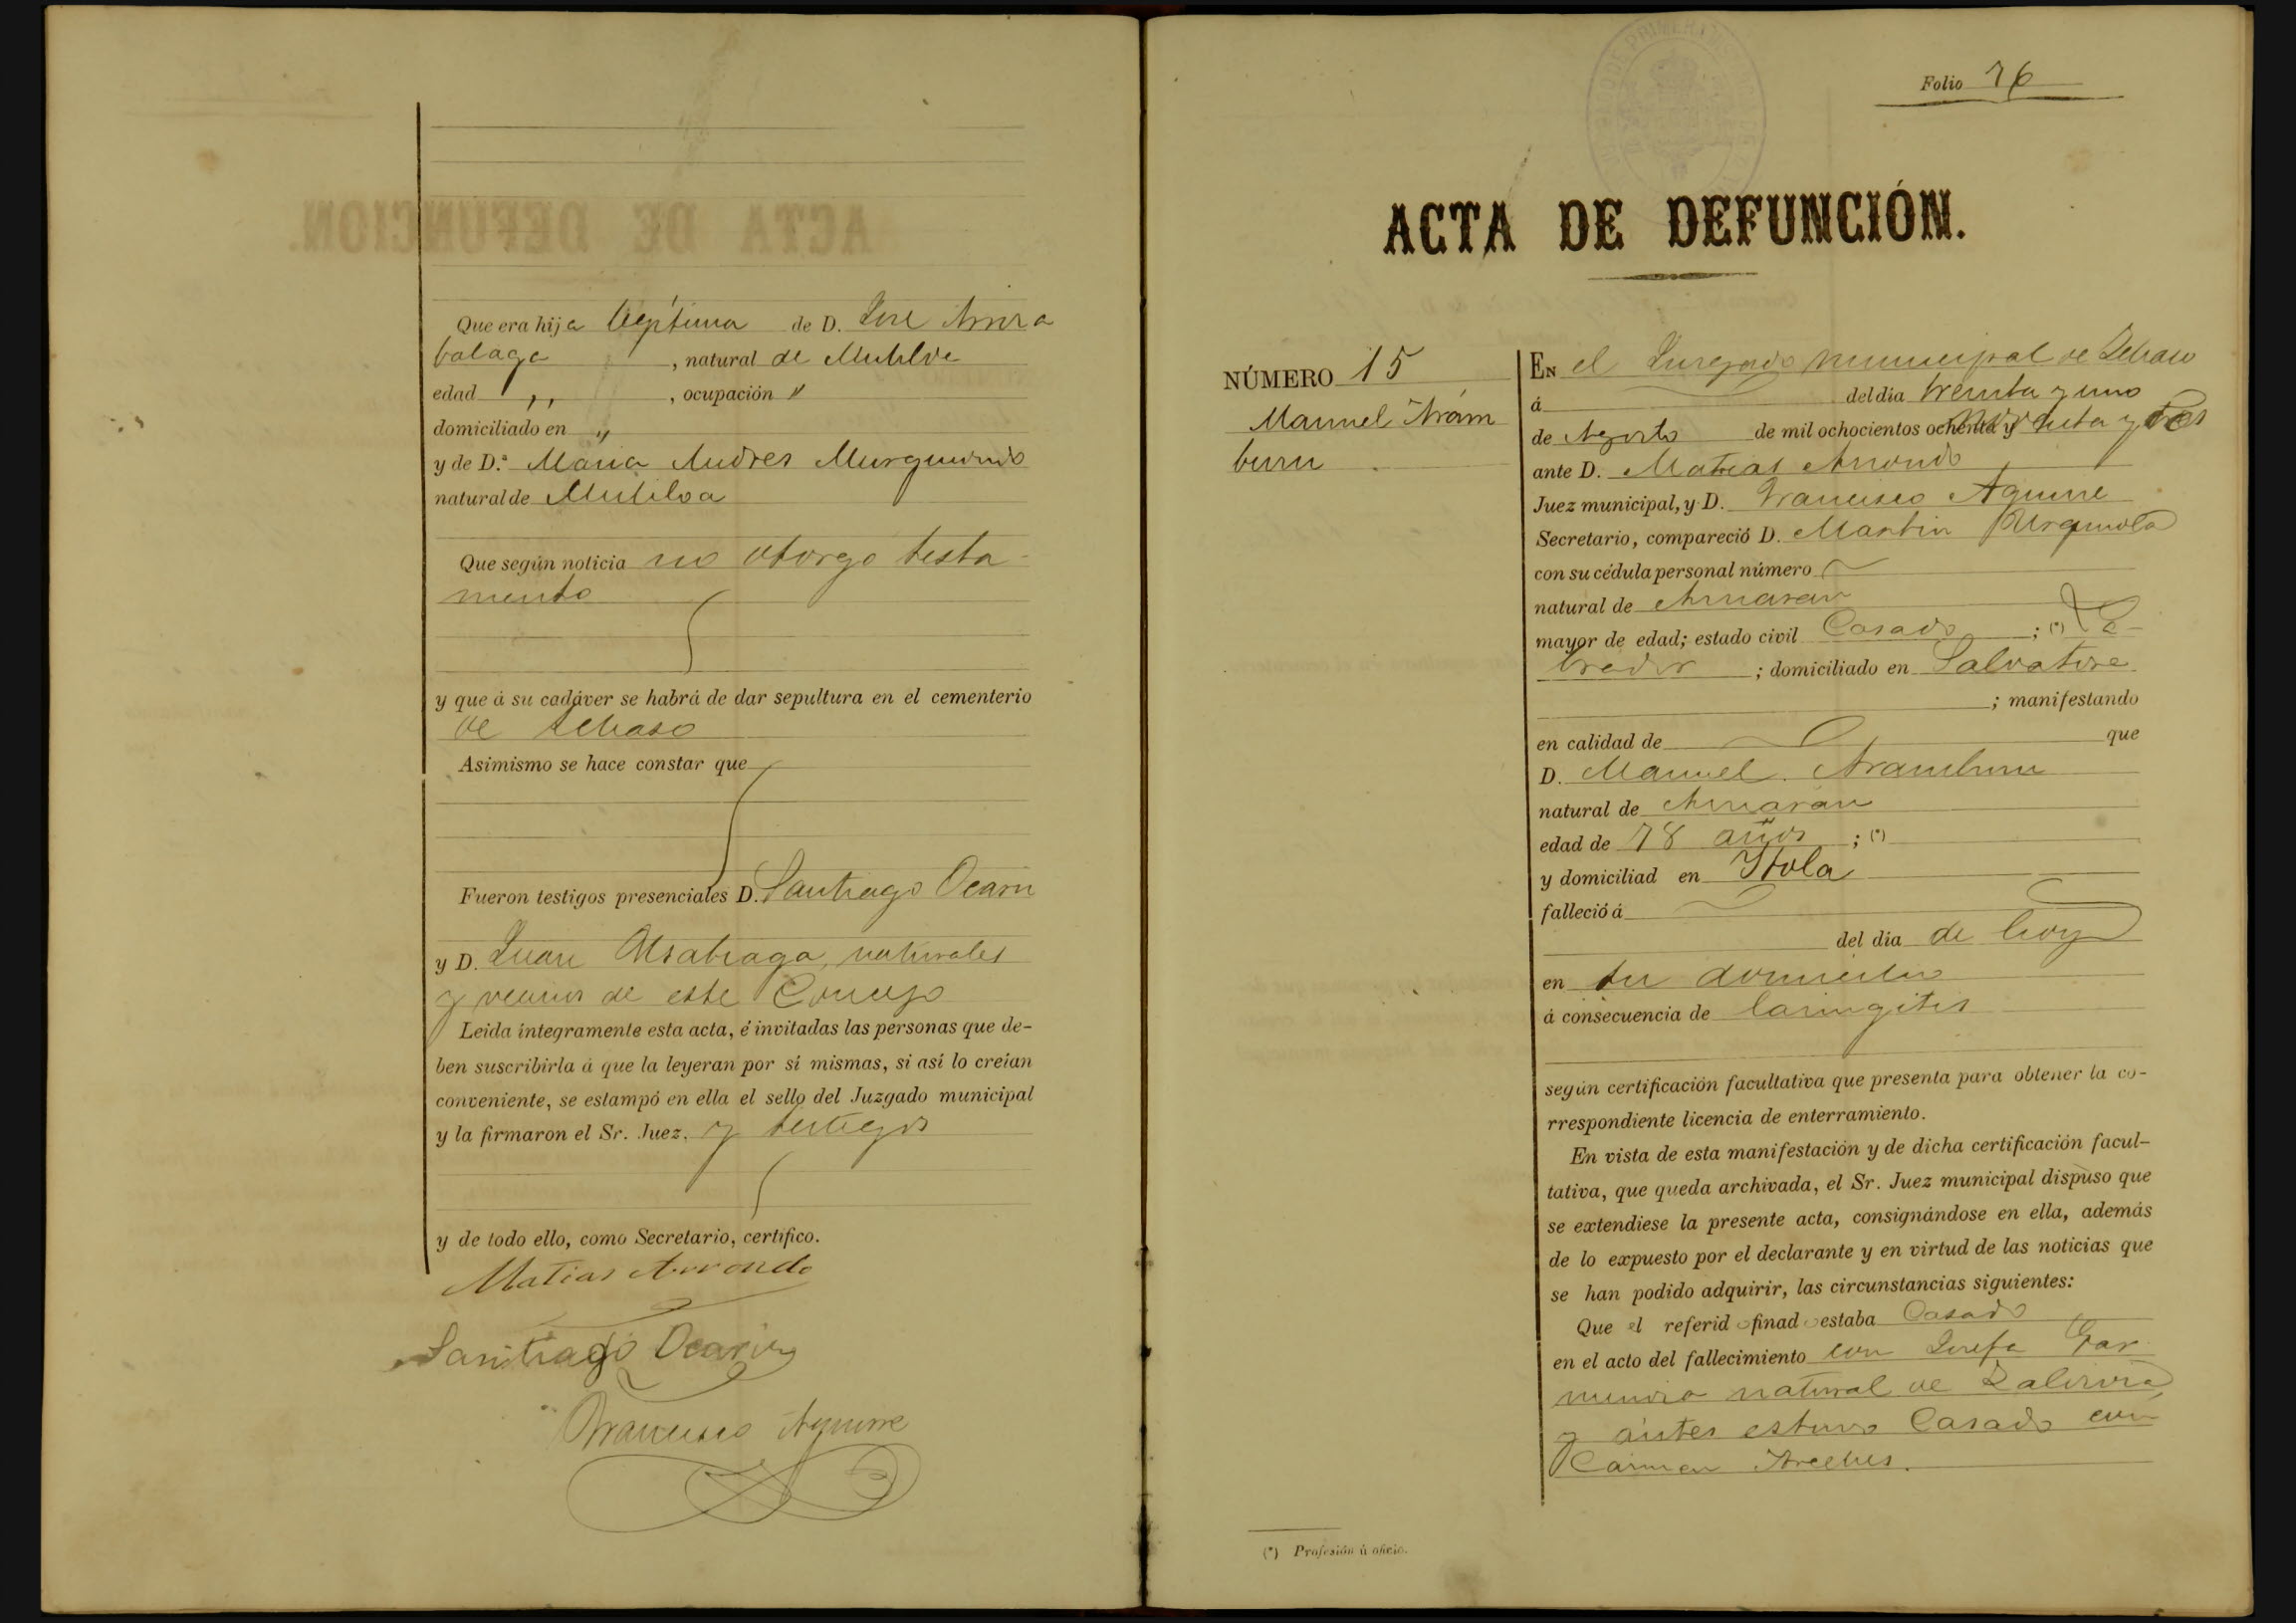 Que era hija legítima de D. José Arrira
balaga, natural de Mutiloa
edad ,, , ocupación ,,
domiciliado en ,,
y de D.ª Maria Andres Murguiondo
natural de Mutiloa
Que según noticia no otorgo testa-
mento
y que á su cadáver se habrá de dar sepultura en el cementerio
de
Asimismo se hace constar que
Fueron testigos presenciales D. Santiago Ocarin
y D. Juan naturales
y vecinos de este Concejo
Leida íntegramente esta acta, é invitadas las personas que de-
ben suscribirla á que la leyeran por sí mismas, si así lo creían
conveniente, se estampó en ella el sello del Juzgado municipal
y la firmaron el Sr. Juez, y testigos
y de todo ello, como Secretario, certifico.
Matias Arrondo
Santiago Ocarin
Francisco Aguirre
Folio 76
ACTA DE DEFUNCIÓN.
NÚMERO 15
Manuel Aram
buru
EN el Juzgado municipal de
á del dia treinta y uno
de Agosto de mil ochocientos ochenta y noventa y tres
ante D. Matias Arrondo
Juez municipal, y D. Francisco Aguirre
Secretario, compareció D. Martin Urquiola
con su cédula personal número
natural de Arriaran
mayor de edad; estado civil Casado ; (*) La-
brador ; domiciliado en Salvatore
; manifestando
en calidad de que
D. Manuel Aramburu
natural de Arriaran
edad de 78 años ; (*)
y domiciliad en Ytola
falleció á
del dia de hoy
en su domicilio
á consecuencia de laringitis
según certificación facultativa que presenta para obtener la co-
rrespondiente licencia de enterramiento.
En vista de esta manifestación y de dicha certificación facul-
tativa, que queda archivada, el Sr. Juez municipal dispuso que
se extendiese la presente acta, consignándose en ella, además
de lo expuesto por el declarante y en virtud de las noticias que
se han podido adquirir, las circunstancias siguientes:
Que el referido finado estaba Casado
en el acto del fallecimiento con Josefa Gar
mendia natural de Zaldivia,
y ántes estuvo Casado con
Carmen Areches.
(*) Profesión ú oficio.